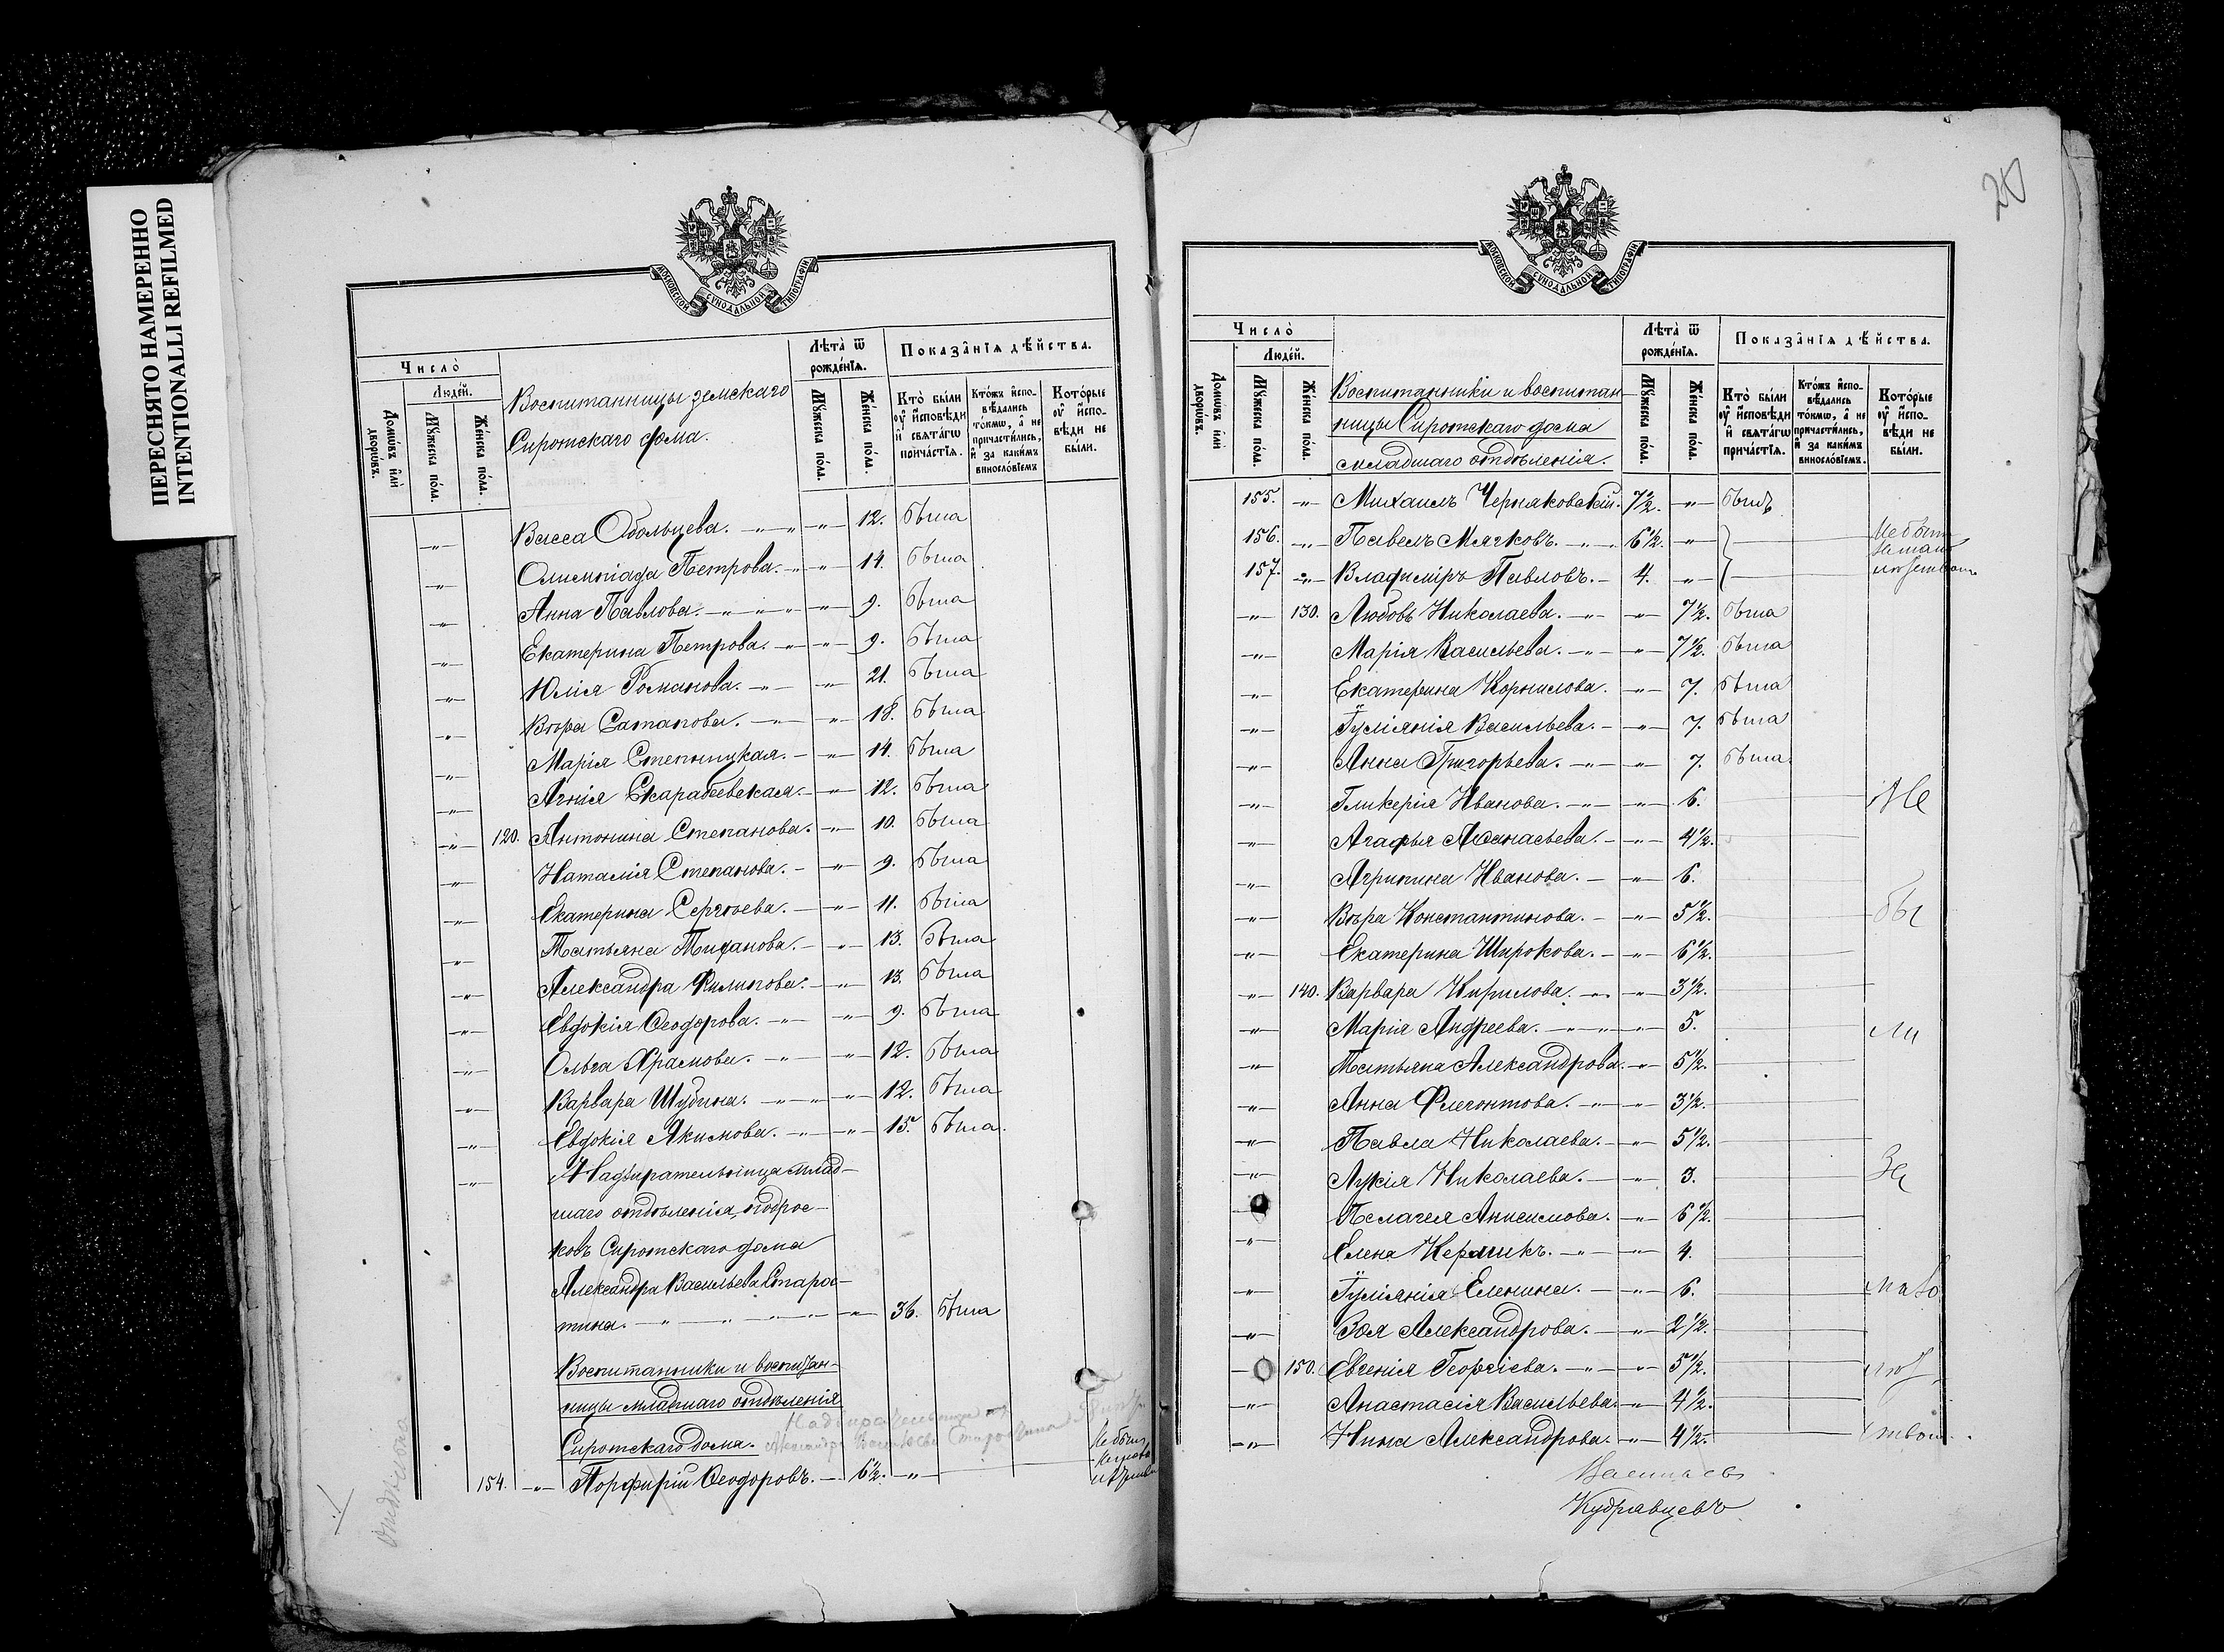 ПЕРЕСНЯТО НАМЕРЕННО
INTENTIONALLI REFILMED
МОСКОВСКОЙ СѴНОДАЛЬНОЙ ТИПОГРАФІИ
Число̀
Люде́й.
Домѡ́въ и҆лѝ дворѡ́въ.
Мꙋ́жеска по́ла.
Же́нска по́ла.
Воспитанницы земскаго
Сиротскаго дома.
Лѣта̀ ѿ рожде́нїѧ.
Мꙋ́жеска по́ла.
Же́нска по́ла.
Показа̑нїѧ дѣ́йства.
Кто̀ бы́ли ᲂу҆ и҆́сповѣди и҆ свѧта́гѡ прича́стїѧ.
Кто́жъ и҆спо-вѣ́дались то́кмѡ, а҆ не причасти́лись, и҆ за каки́мъ виносло́вїемъ
Кото́рые ᲂу҆ и҆́спо-вѣди не бы́ли.
„ Васса Обольцева. „ 12. была
„ Олимпіада Петрова. „ 14. была
„ Анна Павлова. „ 9. была
„ Екатерина Петрова. „ 9. была
„ Юлія Романова. „ 21. была
„ Вѣра Сатапова. „ 18. была
„ Марія Степницкая. „ 14. была
„ Агнія Скарабевская. „ 12. была
„ 120. Антонина Степанова. „ 10. была
„ Наталія Степанова. „ 9. была
„ Екатерина Сергѣева. „ 11. была
„ Татьяна Тиханова. „ 13. была
„ Александра Филипова. „ 13. была
„ Евдокія Ѳеодорова. „ 9. была
„ Ольга Храмова. „ 12. была
„ Варвара Шубина. „ 12. была
„ Евдокія Якимова. „ 15. была.
„ Надзирательница млад-
шаго отдѣленія, подрос-
ковъ Сиротскаго дома
Александра Васильева Старос-
тина. „ 36. была
Воспитанники и воспитан-
ницы младшаго отдѣленія
Надзирательница
Сиротскаго дома. Александра Васильева Старостина
154. „ Порфирій Ѳеодоровъ. 6½. „ Не были
20
МОСКОВСКОЙ СѴНОДАЛЬНОЙ ТИПОГРАФІИ
Число̀
Люде́й.
Домѡ́въ и҆лѝ дворѡ́въ.
Мꙋ́жеска по́ла.
Же́нска по́ла.
Воспитанники и воспитан-
ницы Сиротскаго дома
младшаго отдѣленія.
Лѣта̀ ѿ рожде́нїѧ.
Мꙋ́жеска по́ла.
Же́нска по́ла.
Показа̑нїѧ дѣ́йства.
Кто̀ бы́ли ᲂу҆ и҆́сповѣди и҆ свѧта́гѡ прича́стїѧ.
Кто́жъ и҆спо-вѣ́дались то́кмѡ, а҆ не причасти́лись, и҆ за каки́мъ виносло́вїемъ.
Кото́рые ᲂу҆ и҆́спо-вѣди не бы́ли.
155. „ Михаилъ Черняковскій. 7½. „ былъ
156. „ Павелъ Мягковъ. 6½. „ Не были
за мало
157. „ Владиміръ Павловъ. 4. „ лѣтством
„ 130. Любовь Николаева. „ 7½. была
„ Марія Васильева. „ 7½. была
„ Екатерина Корнилова. „ 7. была
„ Іуліянія Васильева. „ 7. была
„ Анна Григорьева. „ 7. была
„ Гликерія Иванова. „ 6. Не
„ Агафья Аѳанасьева. „ 4½.
„ Агрипина Иванова. „ 6.
„ Вѣра Константинова. „ 5½. бы
„ Екатерина Широкова. „ 6½.
„ 140. Варвара Кирилова. „ 3½.
„ Марія Андреева. „ 5. ли
„ Татьяна Александрова. „ 5½.
„ Анна Флегонтова. „ 3½.
„ Павла Николаева. „ 5½.
„ Лукія Николаева. „ 3. За
Пелагея Анисимова. „ 6½.
„ Елена Керамикъ. „ 4.
„ Іуліянія Еленина. „ 6. мало
„ Зоя Александрова. „ 2½.
150. Евгенія Георгіева. „ 5½. лѣт
„ Анастасія Васильева. „ 4½.
„ Нина Александрова. „ 4½. ством.
Василіевъ
Кудрявцевъ